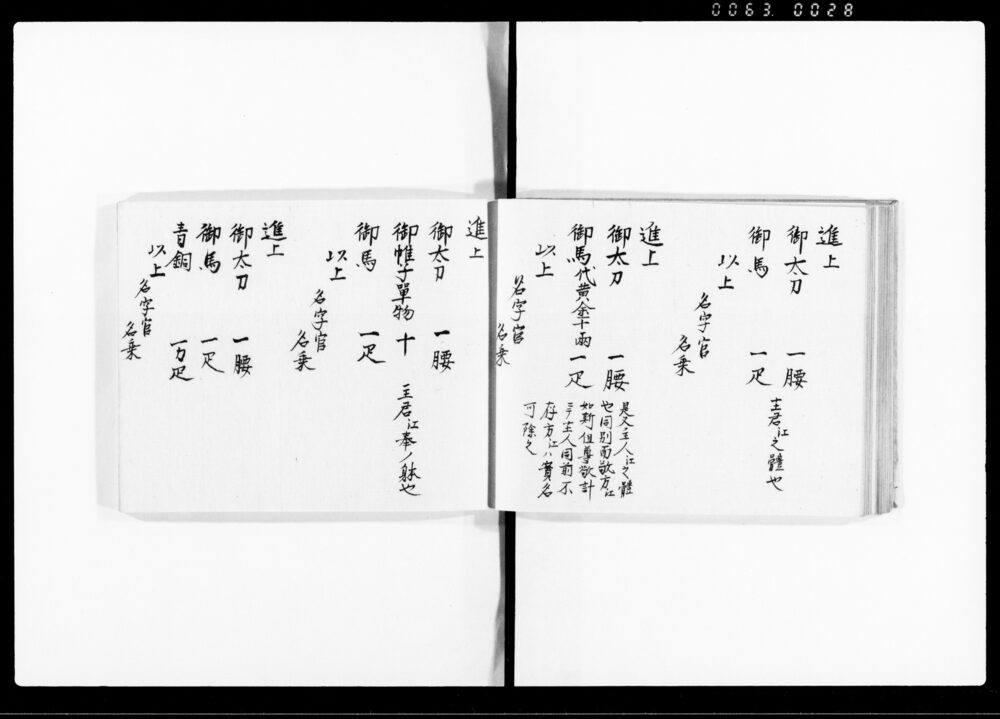 0063. 0028
進上
御太刀 一腰
御馬 一疋 主君江之體也
以上
名字官
名乗
進上
御太刀 一腰
御馬代黄金十兩 一疋
是又主人江之體
也同別而敬方江
如斯但尊敬計
ニテ主人同前不
存方江ハ實名
可除之
以上
名字官
名乗
進上
御太刀 一腰
御帷子單物 十 主君江奉ノ躰也
御馬 一疋
以上
名字官
名乗
進上
御太刀 一腰
御馬 一疋
青銅 一万疋
以上
名字官
名乗